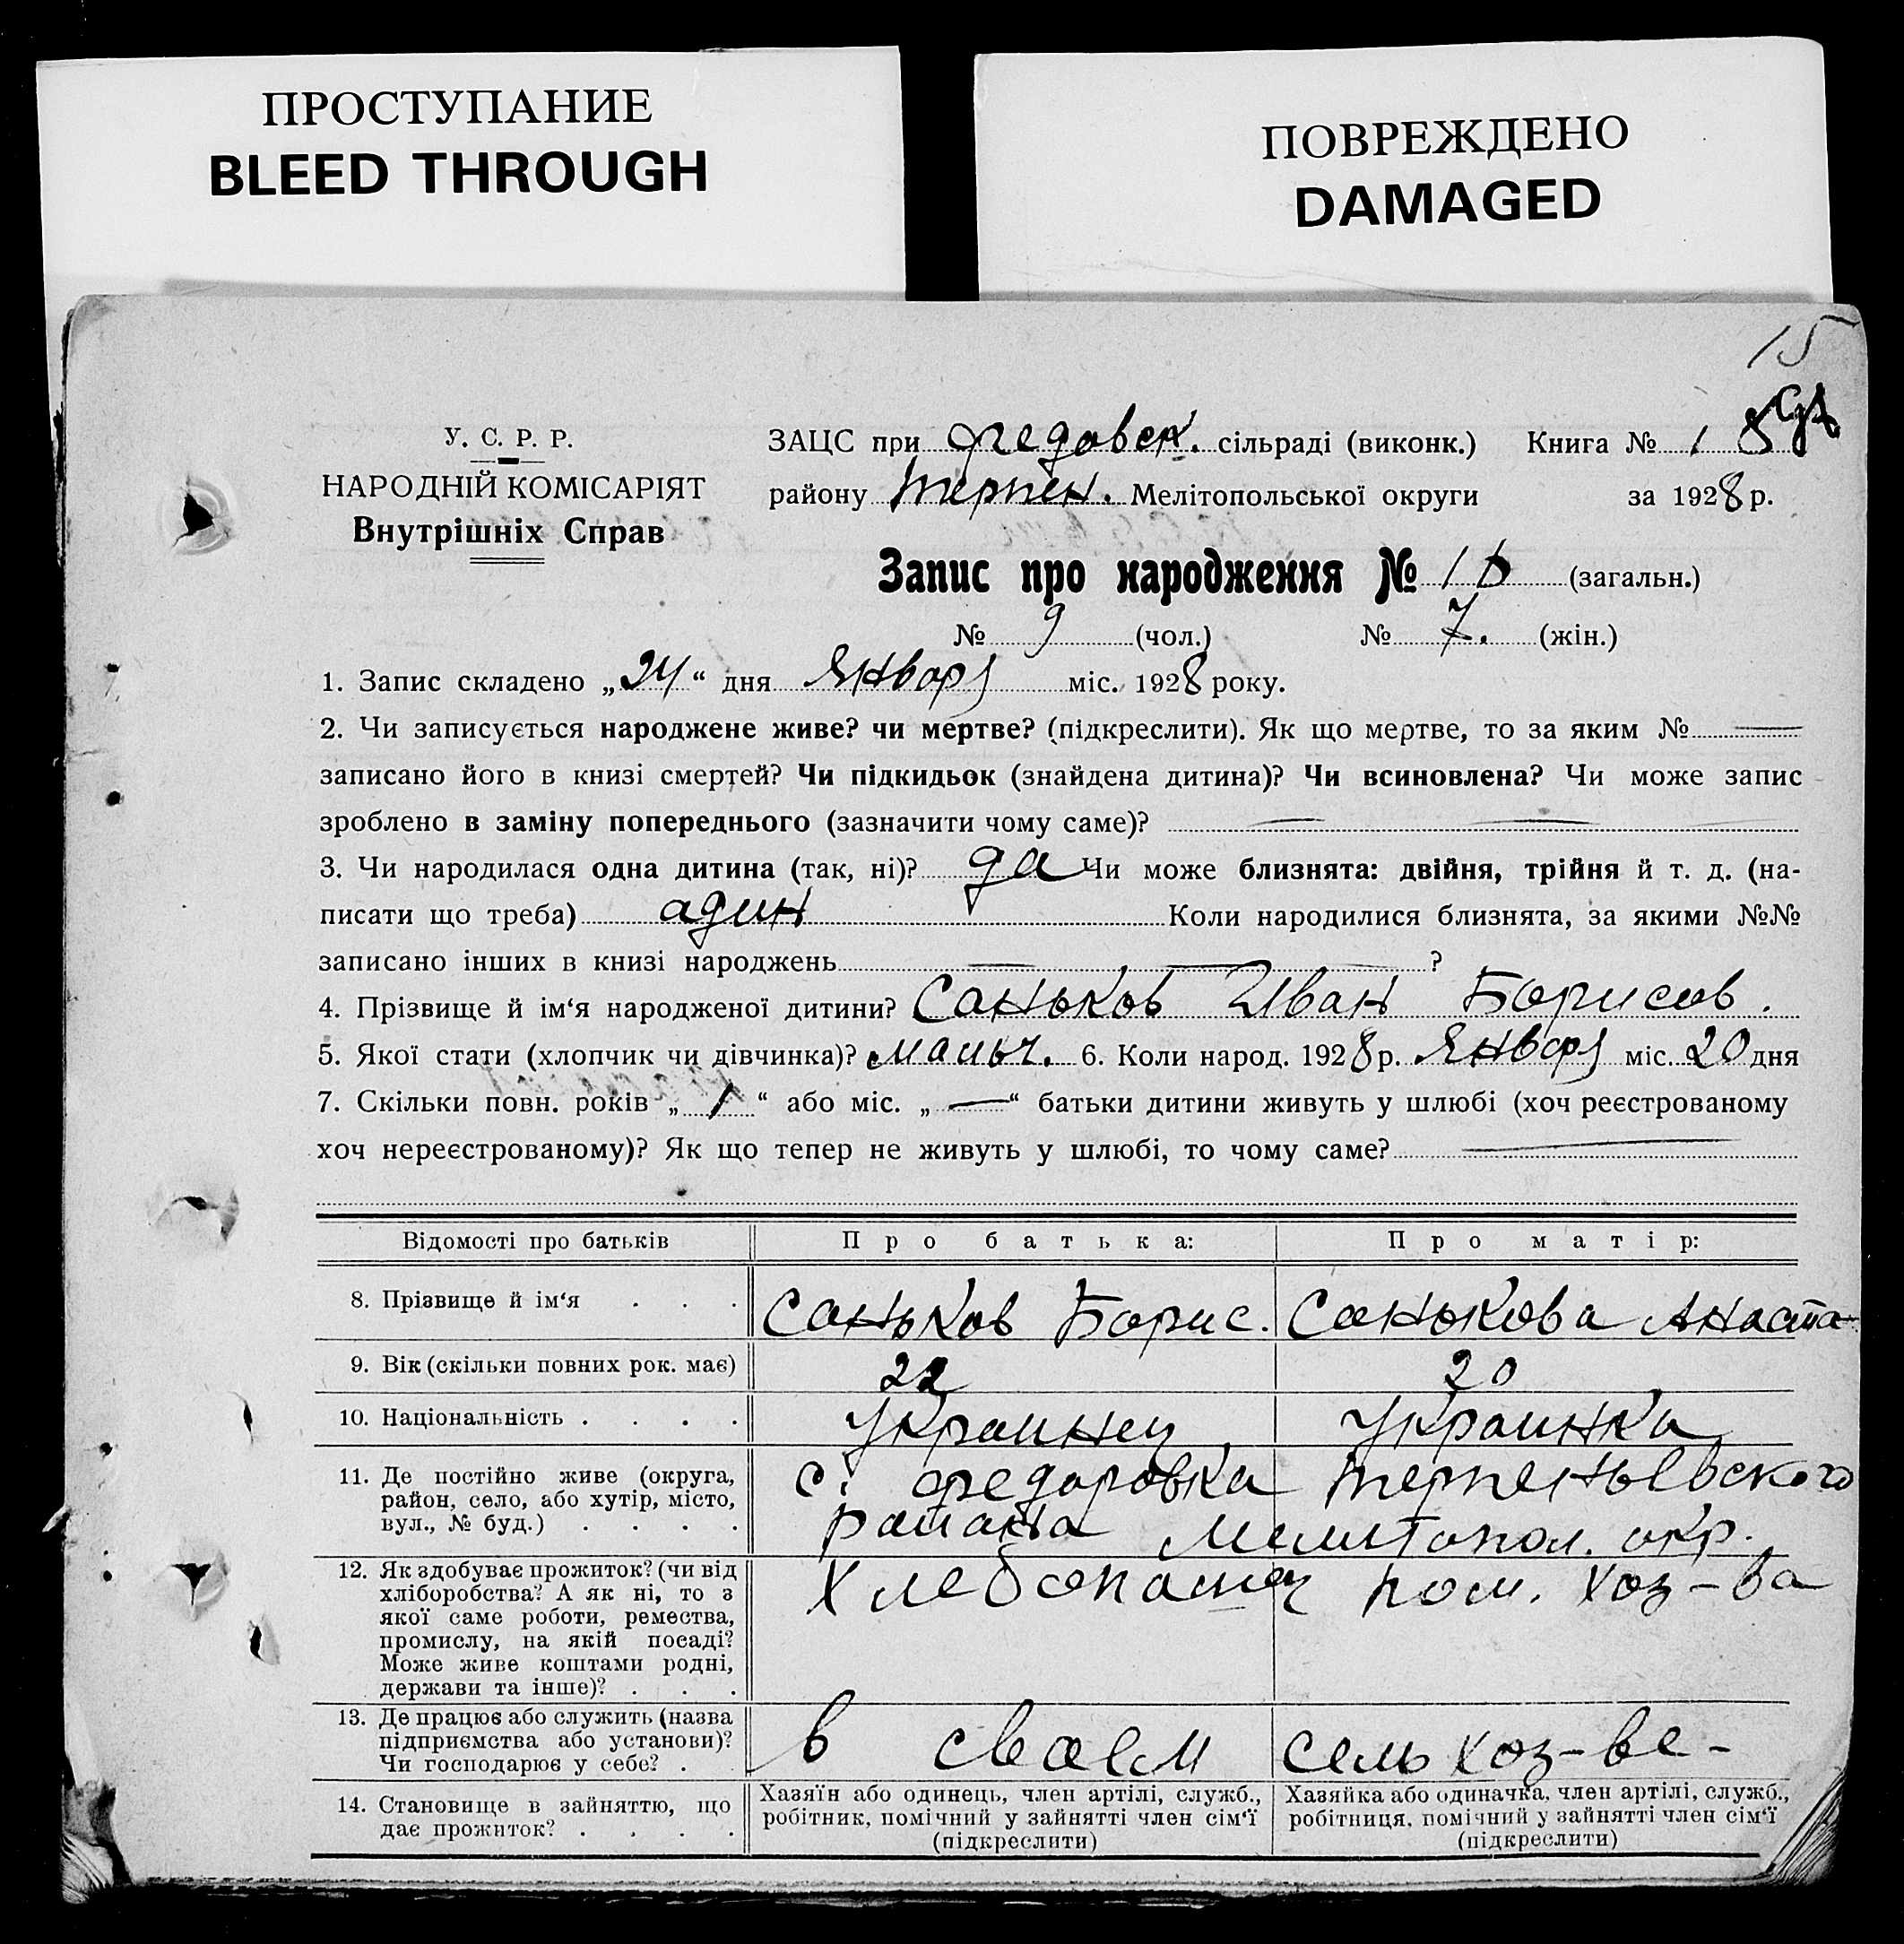 ПРОСТУПАНИЕ
BLEED THROUGH
ПОВРЕЖДЕНО
DAMAGED
15
У. С. Р. Р.
НАРОДНІЙ КОМІСАРІЯТ
Внутрішніх Справ
ЗАЦС при Федовск. сільраді (виконк.) Книга № 1
району Терпен. Мелітопольської округи за 1928 р.
Запис про народження № (загальн.)
№ 9 (чол.) № 7. (жін.)
1. Запис складено „24“ дня Январ міс. 1928 року.
2. Чи записується народжене живе? чи мертве? (підкреслити). Як що мертве, то за яким № —
записано його в книзі смертей? Чи підкидьок (знайдена дитина)? Чи всиновлена? Чи може запис
зроблено в заміну попереднього (зазначити чому саме)? — —
3. Чи народилася одна дитина (так, ні)? да Чи може близнята: двійня, трійня й т. д. (на-
писати що треба) адин Коли народилися близнята, за якими №№
записано інших в книзі народжень — — ?
4. Прізвище й ім‘я народженої дитини? Саньков Иван Борисов.
5. Якої стати (хлопчик чи дівчинка)? мальч. 6. Коли народ. 1928 р. Январ міс. 20 дня
7. Скільки повн. років „1“ або міс. „—“ батьки дитини живуть у шлюбі (хоч реєстрованому
хоч нереєстрованому)? Як що тепер не живуть у шлюбі, то чому саме? —
Відомості про батьків Про батька: Про матір:
8. Прізвище й ім‘я . . . Саньков Борис. Санькова Анаста
9. Вік (скільки повних рок. має) 22 20
10. Національність . . . . Украинец Украинка
11. Де постійно живе (округа,
район, село, або хутір, місто,
вул., № буд.) . . . .
с. Федоровка Терпеньевского
района Мелитопол. окр.
12. Як здобуває прожиток? (чи від
хліборобства? А як ні, то з
якої саме роботи, ремества,
промислу, на якій посаді?
Може живе коштами родні,
держави та інше)? . . .
Хлебопашец пом. хоз-ва
13. Де працює або служить (назва
підприємства або установи)?
Чи господарює у себе? . .
в сваем сель хоз-ве-
14. Становище в зайняттю, що
дає прожиток? . . . .
Хазяїн або одинець, член артілі, служб.,
робітник, помічний у зайнятті член сім‘ї
(підкреслити)
Хазяйка або одиначка, член артілі, служб.,
робітниця, помічний у зайнятті член сім‘ї
(підкреслити)